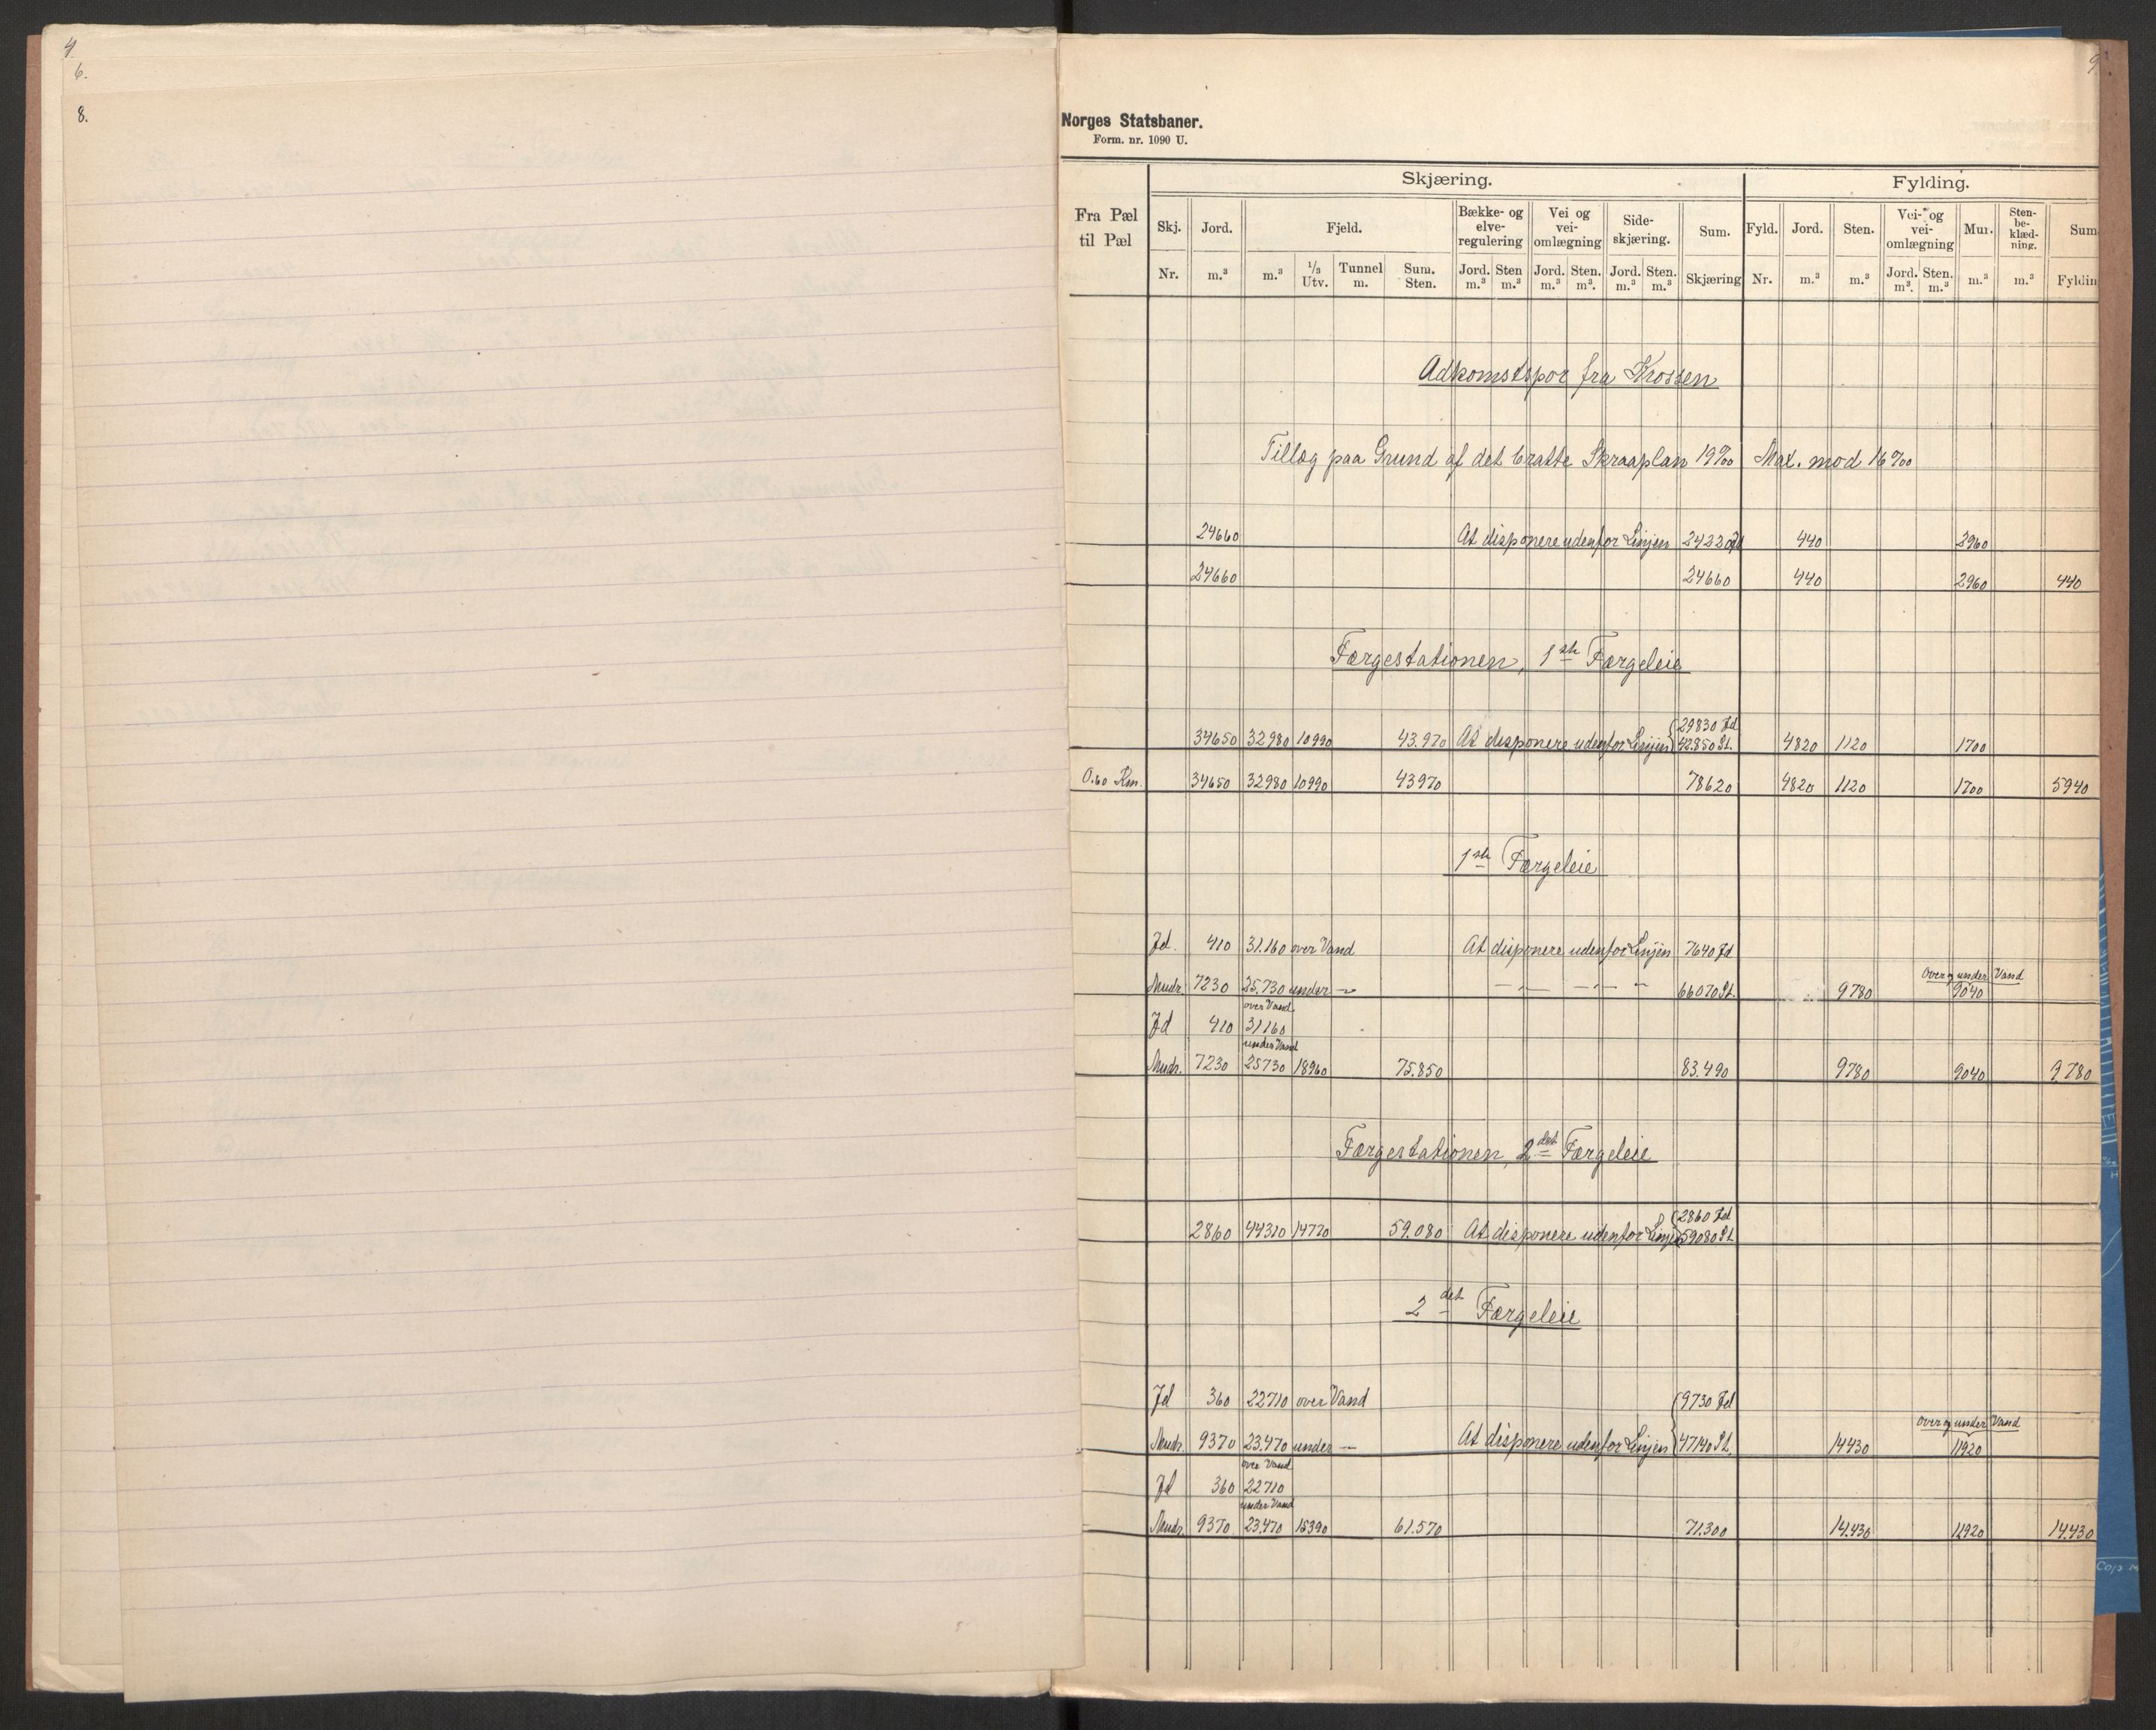 4.
6.
8.
9.
Norges Statsbaner.
Form. nr. 1090 U.
Skjæring. Fylding.
Fra Pæl til Pæl Skj. Jord. Fjeld. Bække- og elve-regulering Vei og vei-omlægning Side-skjæring. Sum. Fyld. Jord. Sten. Vei- og vei-omlægning Mur. Sten-be-klæd-ning. Sum
Nr. m.³ m.³ ⅓ Utv. Tunnel m. Sum. Sten. Jord. m.³ Sten m.³ Jord. m.³ Sten. m³. Jord. m.³ Sten. m.³ Skjæring Nr. m.³ m.³ Jord. m³. Sten. m.³ m.³ m.³ Fyldin
Adkomstspor fra Krossen
Tillæg paa Grund af det bratte Skraaplan 19‰ Max. mod 16‰
24660 At disponere udenfor Linjen 24220 Jd 440 2960
24660 24660 440 2960 440
Færgestationen, 1ste Færgeleie
34650 32980 10990 43.970 At disponere udenfor Linjen 29830 Jd 42.850 St. 4820 1120 1700
0.60 Km. 34650 32980 10990 43970 78620 4820 1120 1700 5940
1ste Færgeleie
Jd. 410 31.160 over Vand At disponere udenfor Linjen 7640 Jd
Mudr. 7230 25.730 under — — — — — — 66070 St. 9780 over og under Vand 9040
Jd 410 over Vand 31160
Mudr. 7230 under Vand 25730 18960 75.850 83.490 9780 9040 9780
Færgestationen, 2det Færgeleie
2860 44310 14770 59.080 At disponere udenfor Linjen 2860 Jd 59080 St
2det Færgeleie
Jd 360 22710 over Vand 9730 Jd
Mudr. 9370 23.470 under — At disponere udenfor Linjen 47140 St. 14430 over og under Vand 11920
Jd 360 over Vand 22710
Mudr. 9370 under Vand 23.470 15390 61.570 71.300 14.430 11920 14.430
Cop. M